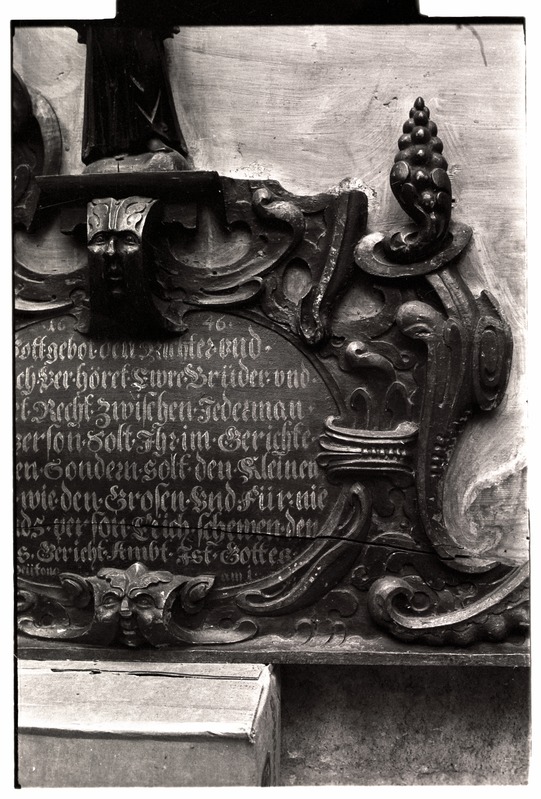 16 46.
Gott gebot den Richter und.
ch Verhöret Ewre Brüder und.
t Recht Zwischen Jederman.
Person Solt Ihr im Gerichte
en Sondern solt den Kleinen
wie den Grosen Und Für nie
ds person Euch schewen den
s. Gericht Ambt Ist Gottes
am 1